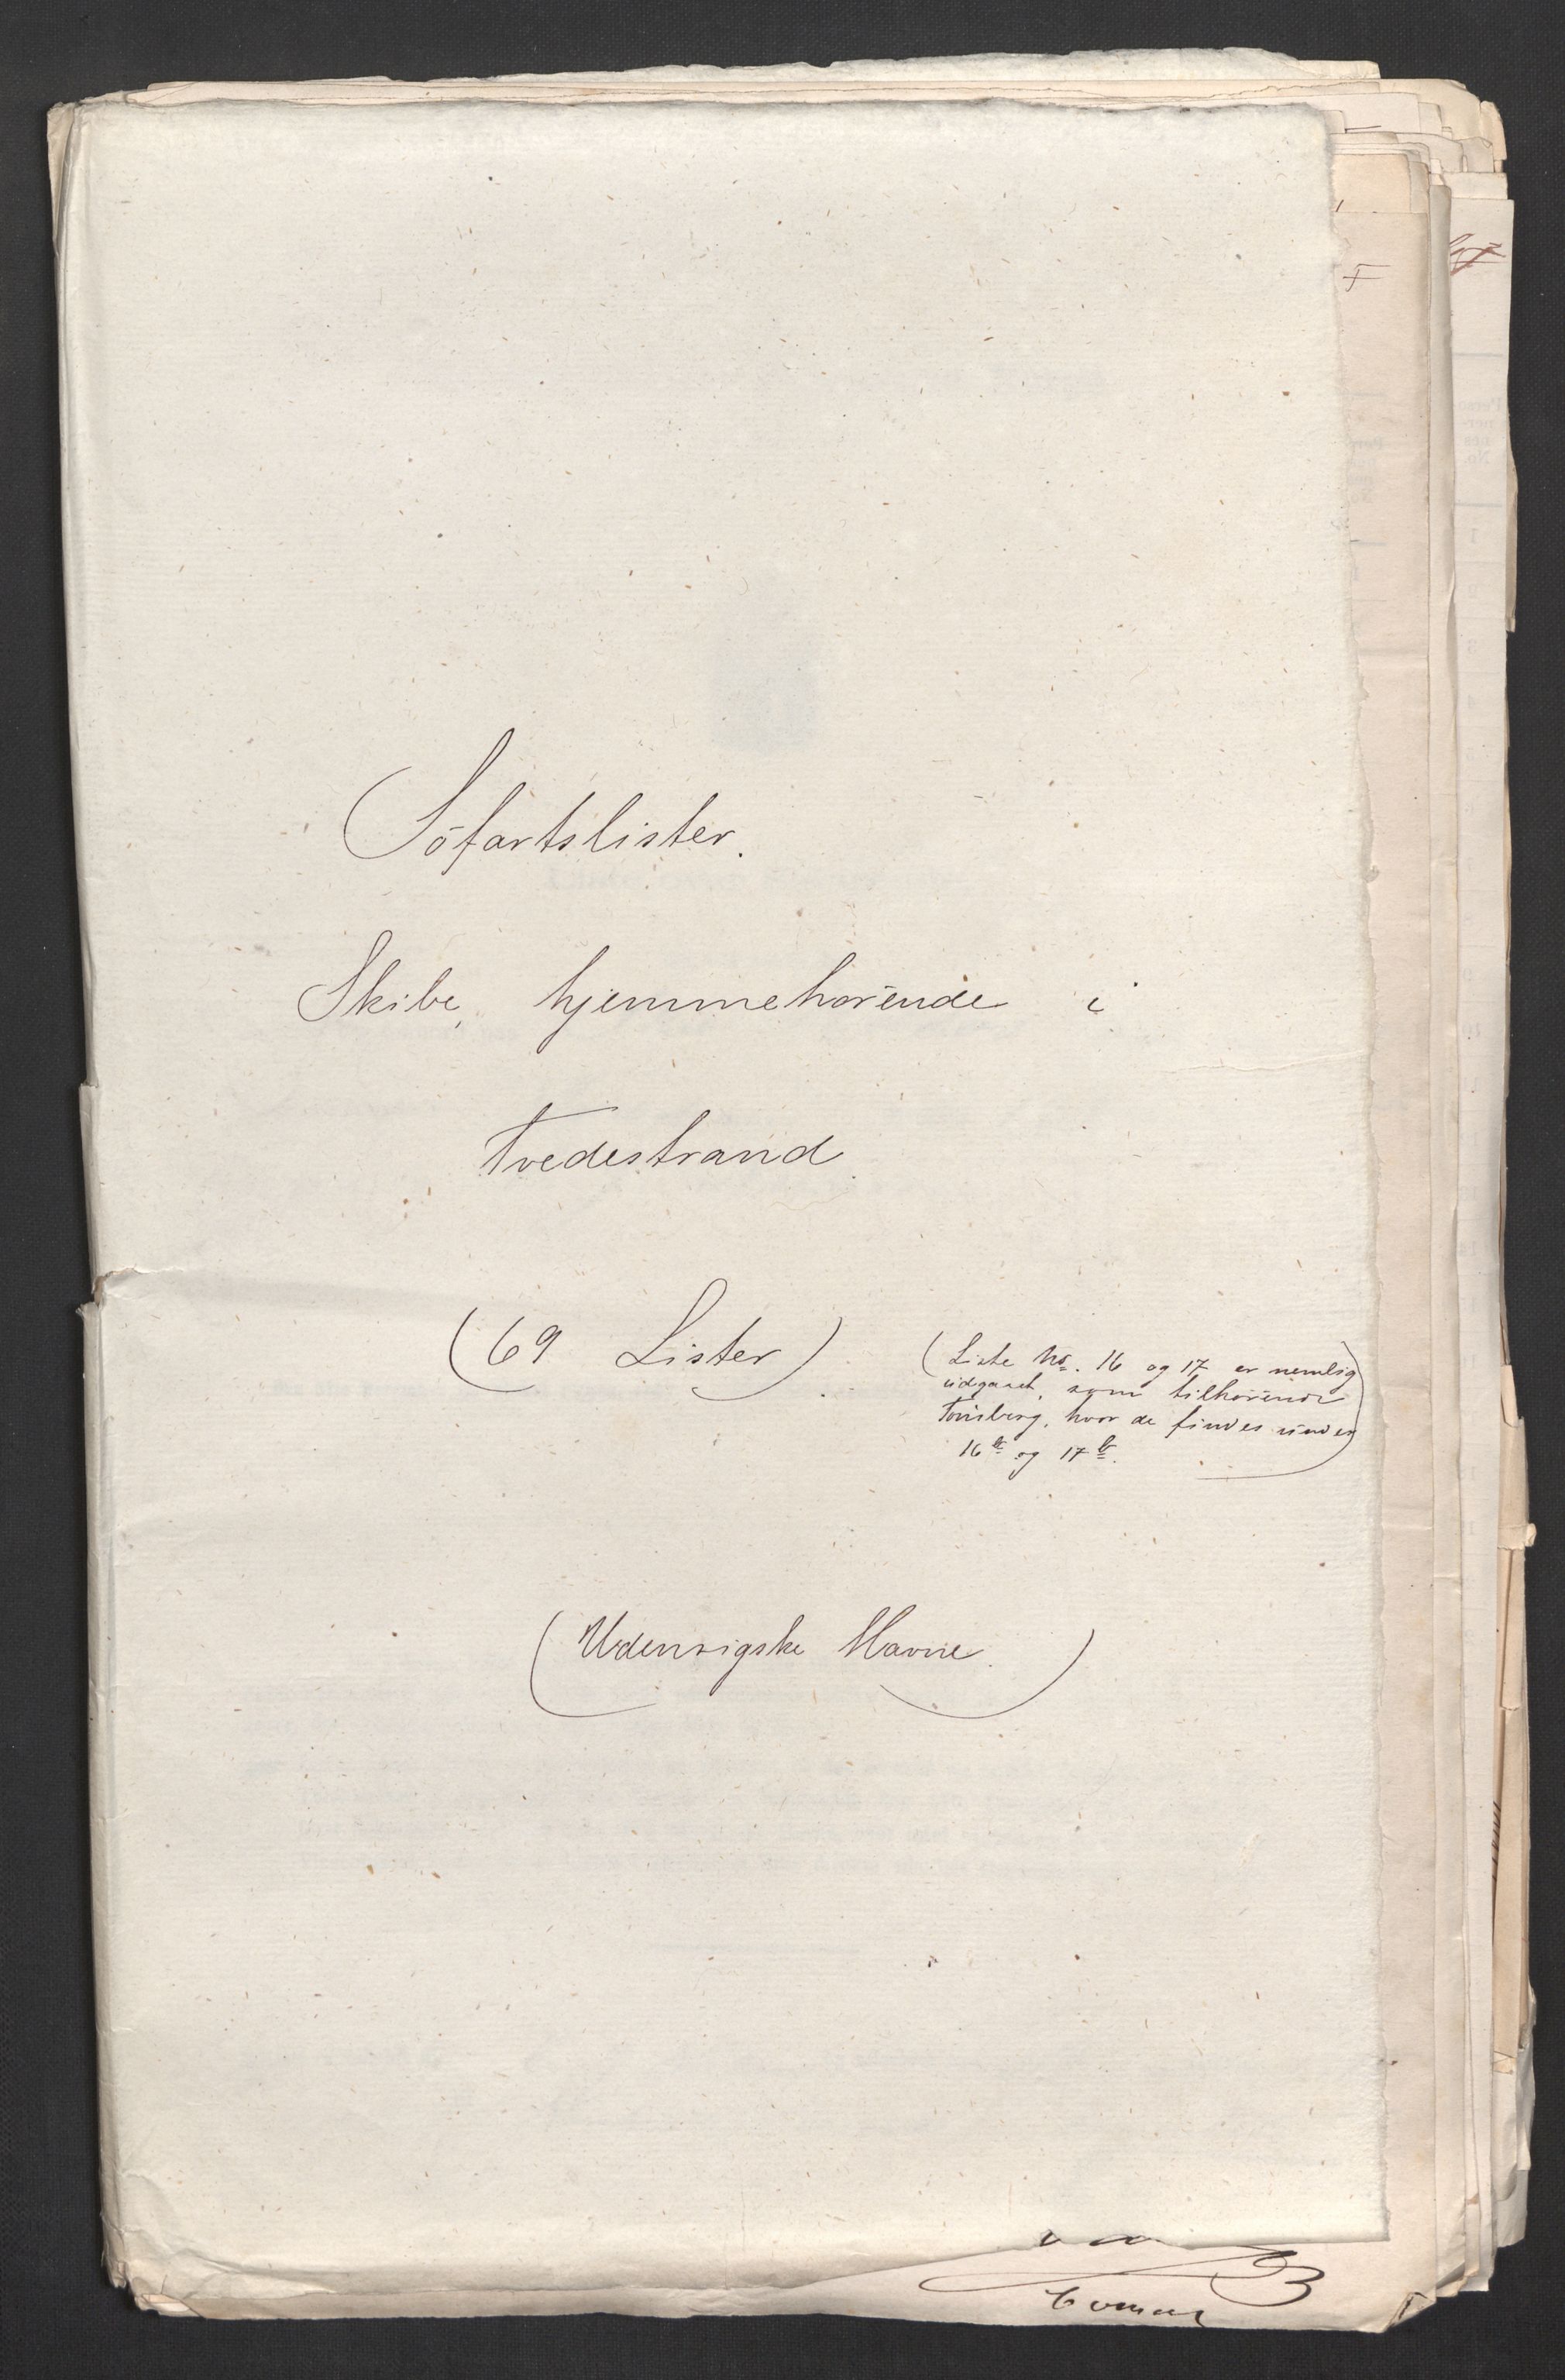 Söfartslister.
Skibe, hjemmehörende i
Tvedestrand.
(69 Lister)
(Liste No. 16 og 17 er nemlig
udgaaet, som tilhörende
Tönsberg, hvor de findes under
16 b og 17 b.)
(Udenrigske Havne.)